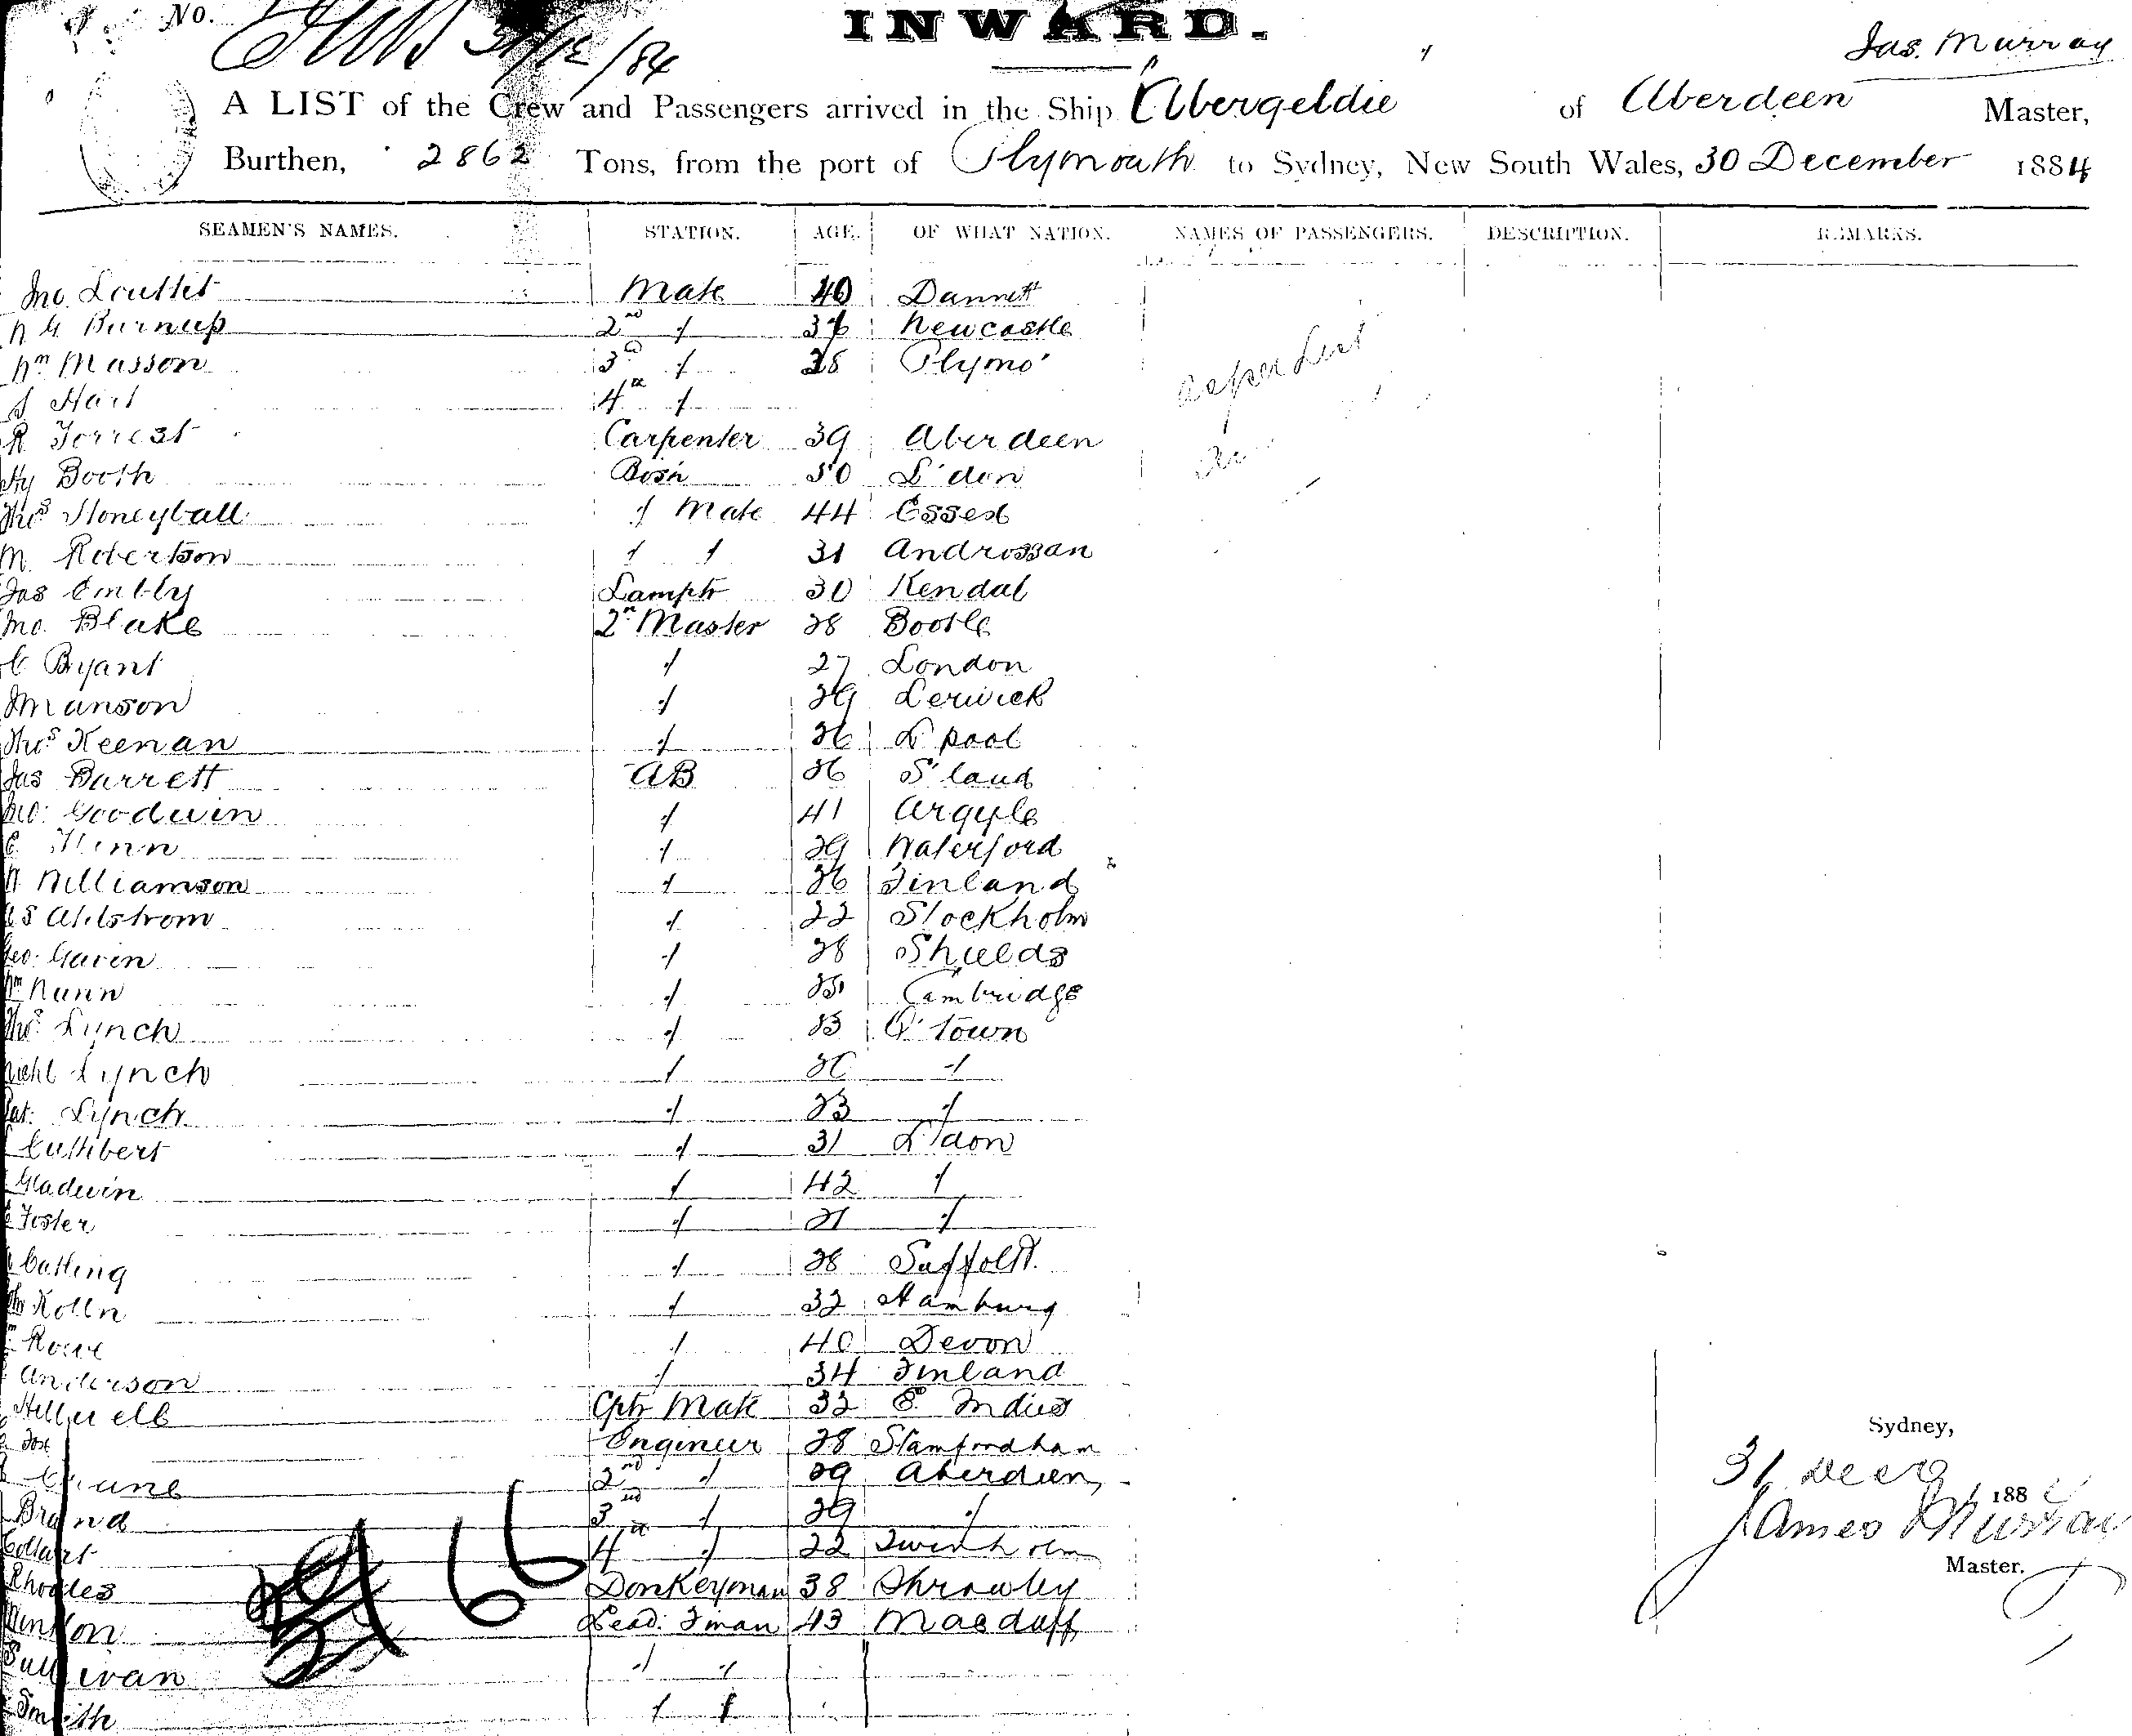 No.
31/12/84
INWARD.
Jas. Murray
A LIST of the Crew and Passengers arrived in the Ship Abergeldie of Aberdeen Master,
Burthen, 2862 Tons, from the port of Plymouth to Sydney, New South Wales, 30 December 1884
SEAMEN'S NAMES. STATION. AGE. OF WHAT NATION. NAMES OF PASSENGERS. DESCRIPTION. REMARKS.
Jno. Louttit Mate 40
Burnup 2nd " Newcastle
Wm Masson 3d " Plymo'
Hart 4th "
R Forrest Carpenter 39 Aberdeen
Hy Booth Bosn 50 L'don
Thos Honeyball " Mate 44 Essex
M. Robertson " " 31 Androssan
Jas Embly Lamptr 30 Kendal
Jno. Blake 2r Master 28 Bootle
C Byant " 27 London
Manson " 29 Lerwick
Thos Keenan " 26 L'pool
Jas Barrett AB 26 S'land
Jno: Goodwin " 41 Argyle
Flinn " 29 Waterford
Williamson " 26 Finland
Ahlstrom " 22 Stockholm
Geo: Gavin " 28 Shields
Wm Nunn " 25 Cambridge
Thos. Lynch " 23 Q'town
Michl Lynch " "
Pat: Lynch " 23 "
Cuthbert " 31 L'don
Gladwin " 42 "
Foster " 21 "
Catling " 28 Suffolk.
Kolln " 32 Hamburg
Rowe " 40 Devon
Anderson " 34 Finland
Cptr Mate 32 E. Indies
Engineer 28 Stamfordham
2nd " 29 Aberdeen
Brand 3rd " 29 "
4th " 22 Twinholm
Rhodes Donkeyman 38 Shrawley
Lead: Fman 43 Macduff
Sullivan " "
Smith " "
66
Sydney,
31 Decr 188
James Murray
Master.